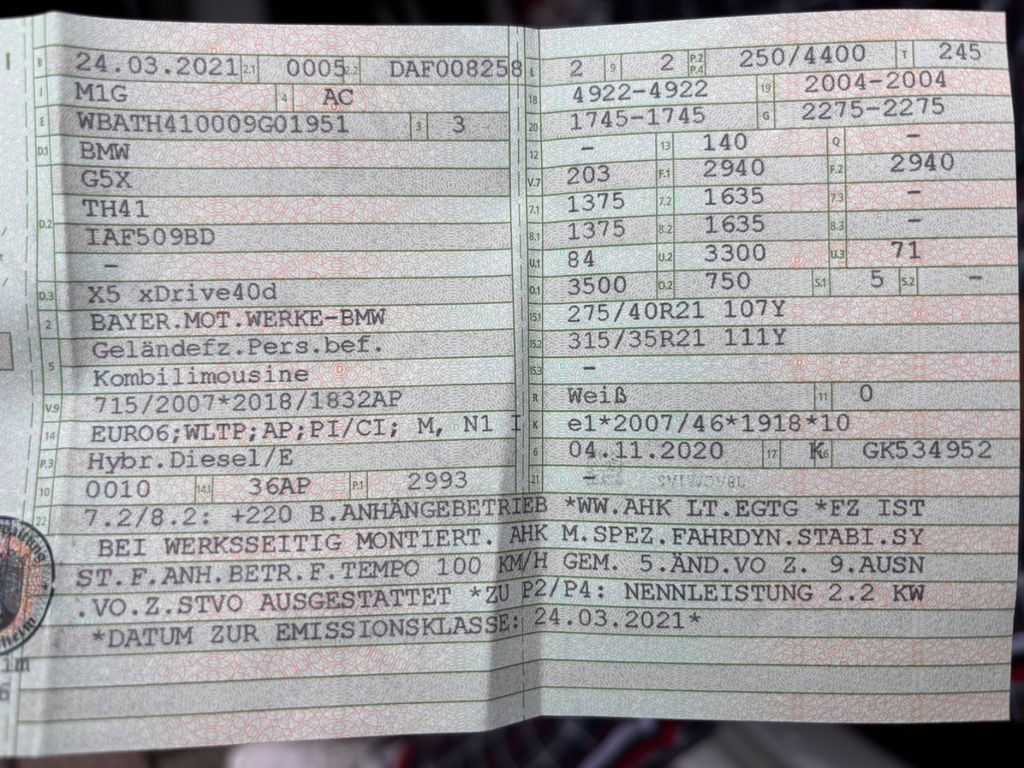 B 24.03.2021 2.1 0005 2.2 DAF008258
J M1G 4 AC
E WBATH410009G01951 3 3
D.1 BMW
G5X
D.2 TH41
IAF509BD
–
D.3 X5 xDrive40d
2 BAYER.MOT.WERKE-BMW
5 Geländefz.Pers.bef.
Kombilimousine
V.9 715/2007*2018/1832AP
14 EURO6;WLTP;AP;PI/CI; M, N1 I
P.3 Hybr.Diesel/E
10 0010 14.1 36AP P.1 2993
L 2 9 2 P.2 P.4 250/4400 T 245
18 4922-4922 19 2004-2004
20 1745-1745 G 2275-2275
12 – 13 140 Q –
V.7 203 F.1 2940 F.2 2940
7.1 1375 7.2 1635 7.3 –
8.1 1375 8.2 1635 8.3 –
U.1 84 U.2 3300 U.3 71
O.1 3500 O.2 750 S.1 5 S.2 –
15.1 275/40R21 107Y
15.2 315/35R21 111Y
15.3 –
R Weiß 11 0
K e1*2007/46*1918*10
6 04.11.2020 17 K 16 GK534952
21 –
22 7.2/8.2: +220 B.ANHÄNGEBETRIEB *WW.AHK LT.EGTG *FZ IST
BEI WERKSSEITIG MONTIERT. AHK M.SPEZ.FAHRDYN.STABI.SY
ST.F.ANH.BETR.F.TEMPO 100 KM/H GEM. 5.ÄND.VO Z. 9.AUSN
.VO.Z.STVO AUSGESTATTET *ZU P2/P4: NENNLEISTUNG 2.2 KW
*DATUM ZUR EMISSIONSKLASSE: 24.03.2021*
im
6